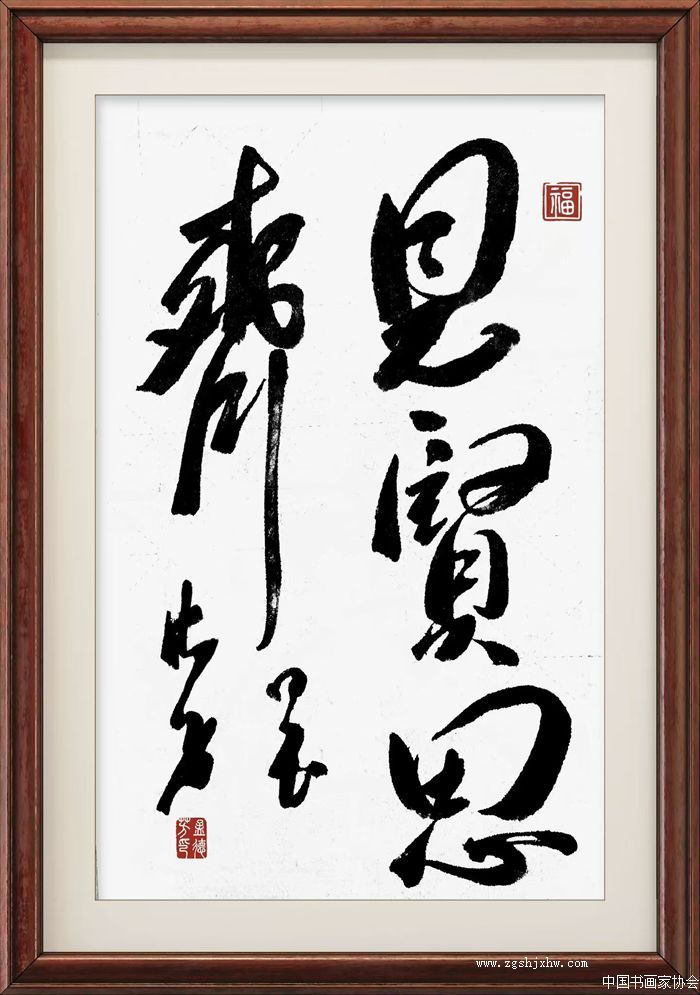 福
見賢思
齊
孟德
芳印
www.zgshjxhw.com
中国书画家协会